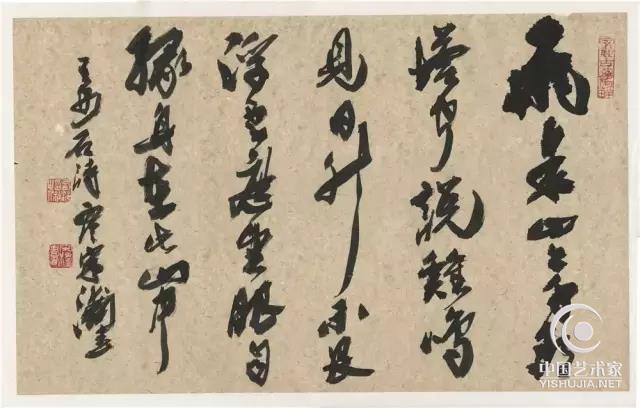 飛來山上千尋
塔聞說雞鳴
見日升不畏
浮雲遮望眼自
緣身在
王安石詩
中国艺术家
YISHUJIA.NET